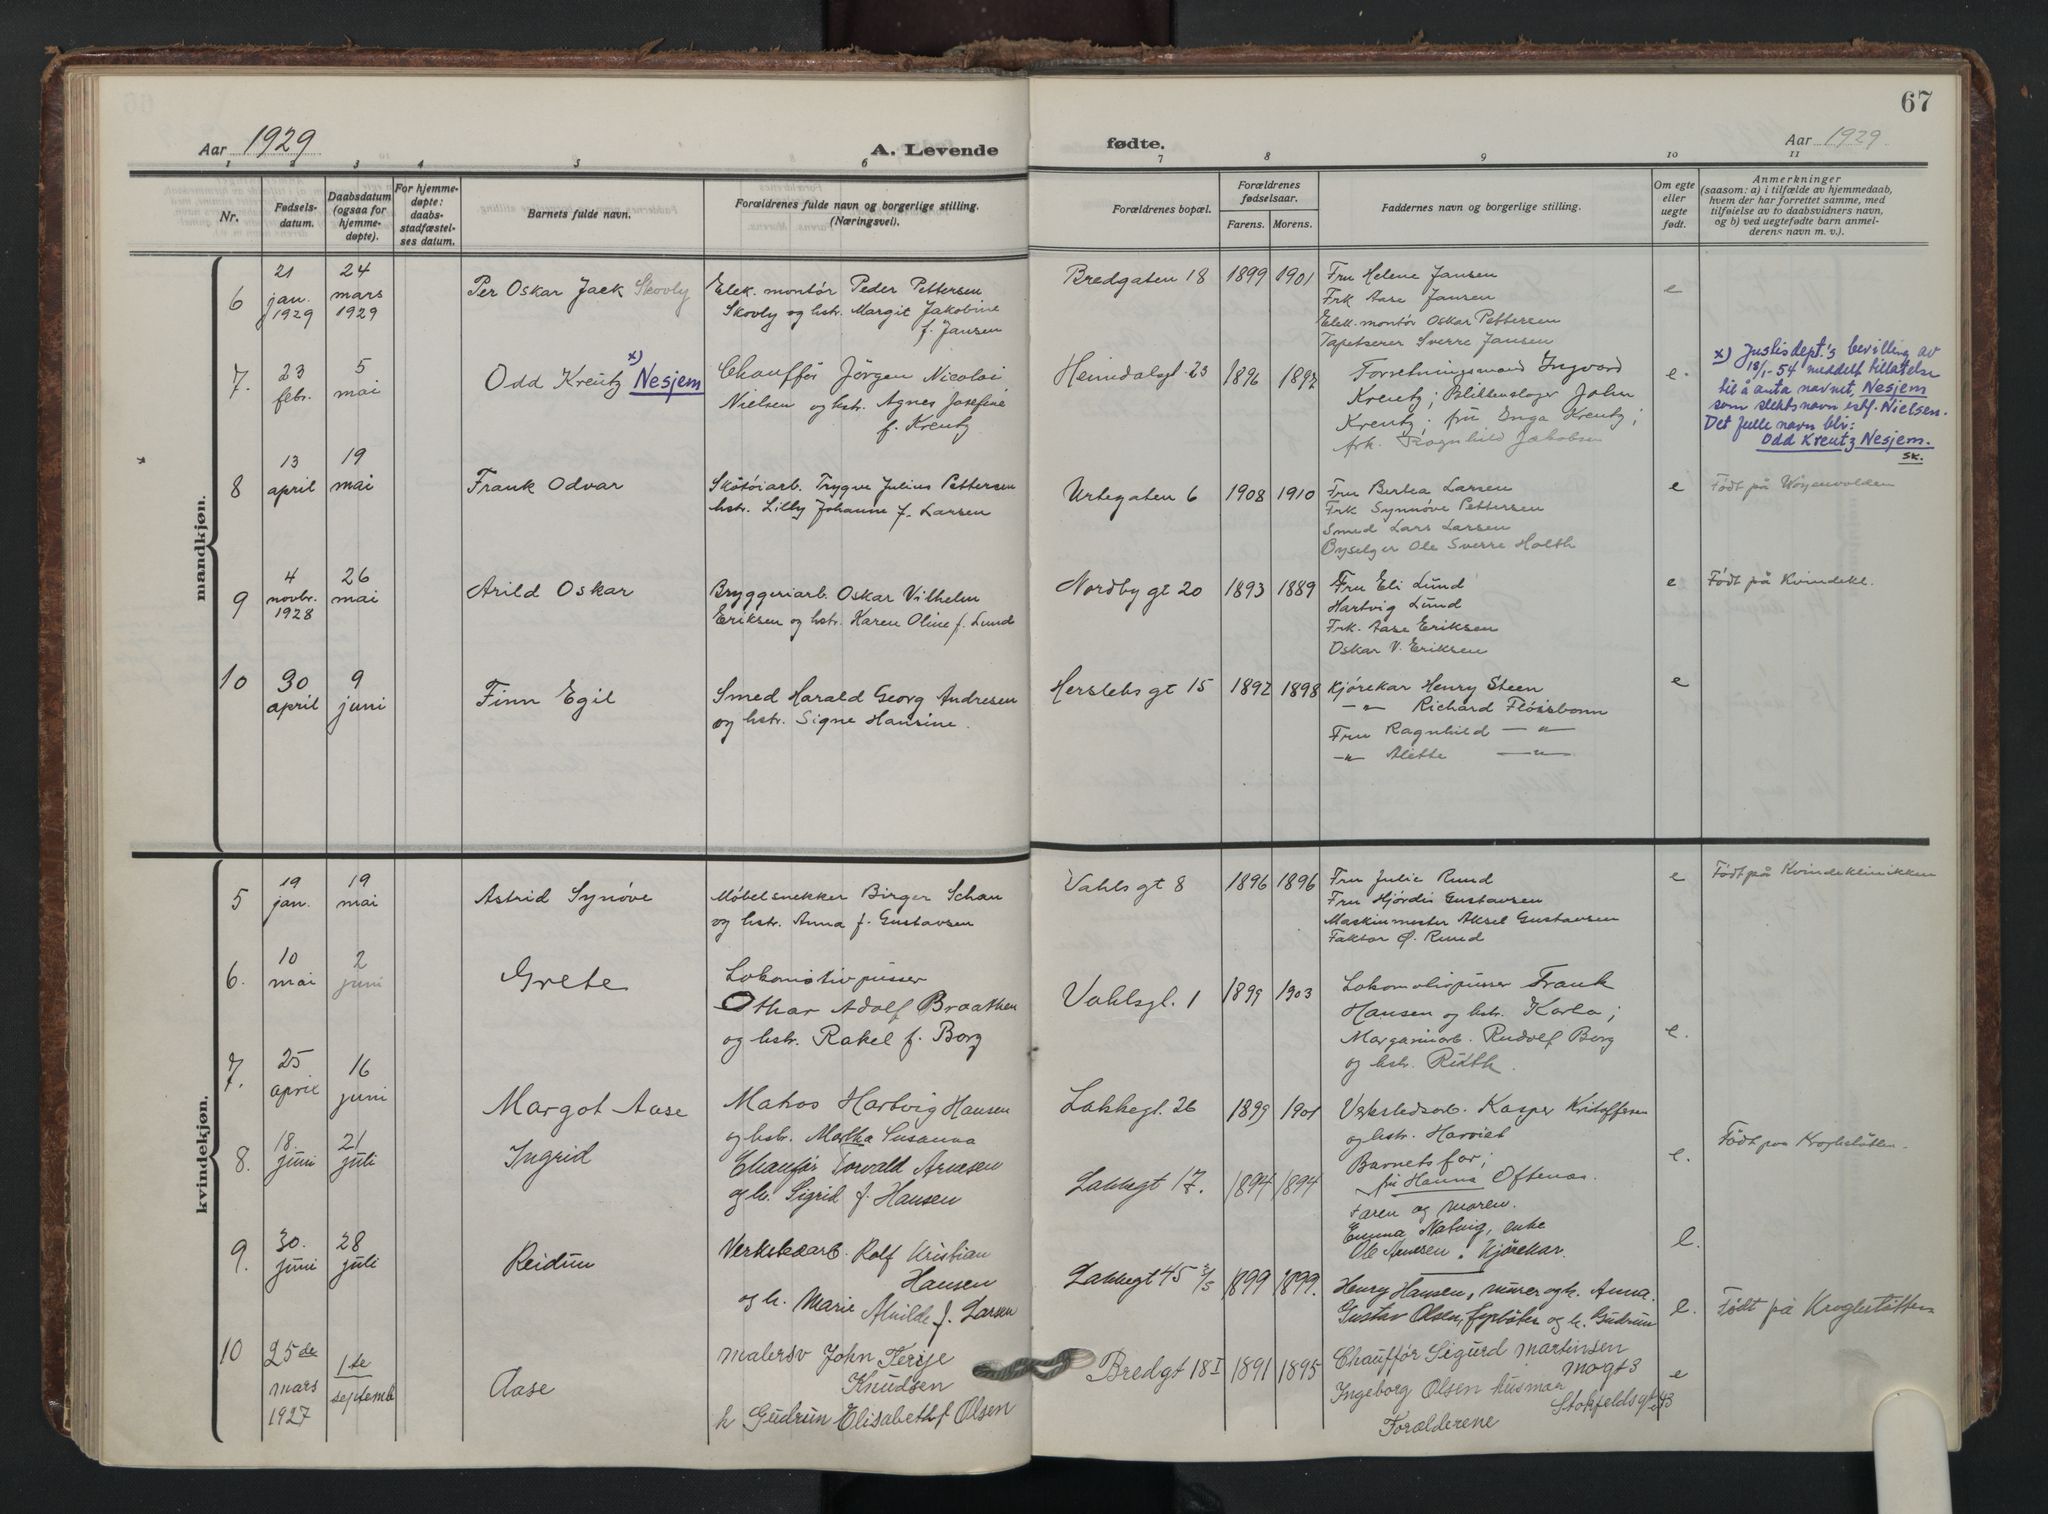 67
Aar 1929
A. Levende
fødte.
Aar 1929
1 2 3 4 5 6 7 8 9 10 11
Nr.
Fødsels-
datum.
Daabsdatum
(ogsaa for
hjemme-
døpte).
For hjemme-
døpte:
daabs-
stadfæstel-
ses datum.
Barnets fulde navn.
Forældrenes fulde navn og borgerlige stilling.
(Næringsvei).
Forældrenes bopæl.
Forældrenes
fødselsaar.
Farens. Morens.
Faddernes navn og borgerlige stilling.
Om egte
eller
uegte
født.
Anmerkninger
(saasom: a) i tilfælde av hjemmedaab,
hvem der har forrettet samme, med
tilføielse av to daabsvidners navn,
og b) ved uegtefødte barn anmel-
derens navn m. v.).
mandkjøn.
6
21
jan.
1929
24
mars
1929
Per Oskar Jack Skovly
Elek. montør Peder Pettersen
Skovly og hstr. Margit Jakobine
f. Jansen
Bredgaten 18
1899
1901
Fru Helene Jansen
Frk Aase Jansen
Elek. montør Oskar Pettersen
Tapetserer Sverre Jansen
e
7.
23
febr.
5
mai
Odd Kreutz x) Nesjem
Chauffør Jørgen Nicolai
Nielsen og hstr. Agnes Josefine
f. Kreutz
Heimdalsgt. 23
1896
1897
Forretningsmand Ingvard
Kreutz; Blikkenslager John
Kreutz; fru Inga Kreutz;
frk. Ragnhild Jakobsen
e.
x) Justisdept.'s bevilling av
18/1-54 meddelt tillatelse
til å anta navnet, Nesjem
som slektsnavn istf. Nielsen.
Det fulle navn blir:
Odd Kreutz Nesjem.
sk.
8
13
april
19
mai
Frank Odvar
Skotøiarb. Trygve Julius Pettersen
hstr. Lilly Johanne f. Larsen
Urtegaten 6
1908
1910
Fru Berta Larsen
Frk Synnøve Pettersen
Smed Lars Larsen
Byselger Ole Sverre Holth
e
Født på Vøyenvolden
9
4
novbr.
1928
26
mai
Arild Oskar
Bryggeriarb. Oskar Vilhelm
Eriksen og hstr. Karen Oline f. Lund
Nordby gt 20
1893
1889
Fru Eli Lund
Hartvig Lund
Frk. Aase Eriksen
Oskar V. Eriksen
e
Født på Kvindekl.
10
30
april
9
juni
Finn Egil
Smed Harald Georg Andresen
og hstr. Signe Hansine.
Herslebs gt 15
1897
1898
Kjørekar Henry Steen
—"— Richard
Fru Ragnhild —"—
—"— Alette —"—
e
kvindekjøn.
5
19
jan.
19
mai
Astrid Synøve
Møbelsnekker Birger Schau
og hstr. Anna f. Gustavsen
Vahls gt 8
1896
1896
Fru Julie Rund
Fru Hjørdis Gustavsen
Maskinmester Aksel Gustavsen
Faktor Ø. Rund
e
Født på Kvindeklinikken
6.
10
mai
2
juni
Grete
Lokomotivpusser
Othar Adolf Braathen
og hstr. Rakel f. Borg
Vahlsgt. 1
1899
1903
Lokomotivpusser Frank
Hansen og hstr. Karla;
Margarinarb. Rudolf Borg
og hstr. Ruth.
e.
7.
25
april
16
juni
Margot Aase
Matros Hartvig Hansen
og hstr. Martha Susanna
Lakkegt. 26
1899
1901
Verkstedsarb. Kasper Kristoffersen
og hstr. Harriet
Barnets far;
fru Hanna Oftenæs.
e.
Født paa Kroghstøtten.
8.
18.
juni
21
juli
Ingrid
Chauffør Torvald Arnesen
og h. Sigrid f. Hansen
Lakkegt 17.
1894
1894
Faren og moren.
Emma Natvig, enke
Ole Arnesen, Kjørekar.
e.
9.
30.
juni
28
juli
Reidun
Verkstedarb. Rolf Kristian
Hansen
og h. Marie Alvilde f. Larsen
Lakkegt 45
1899
1899.
Henry Hansen, murer og h. Anna.
Gustav Olsen, fyrbøter og h. Gudrun
e.
Født på Krogstøtten
10
25de
mars
1927
1ste
septemb
Aase
malersv John Terje
Knudsen
h Gudrun Elisabeth f Olsen
Bredgt 18 I
1891
1895
Chauffør Sigurd Martinsen
Ingeborg Olsen husmor
Stokfeldsgt 43
Forælderene
e